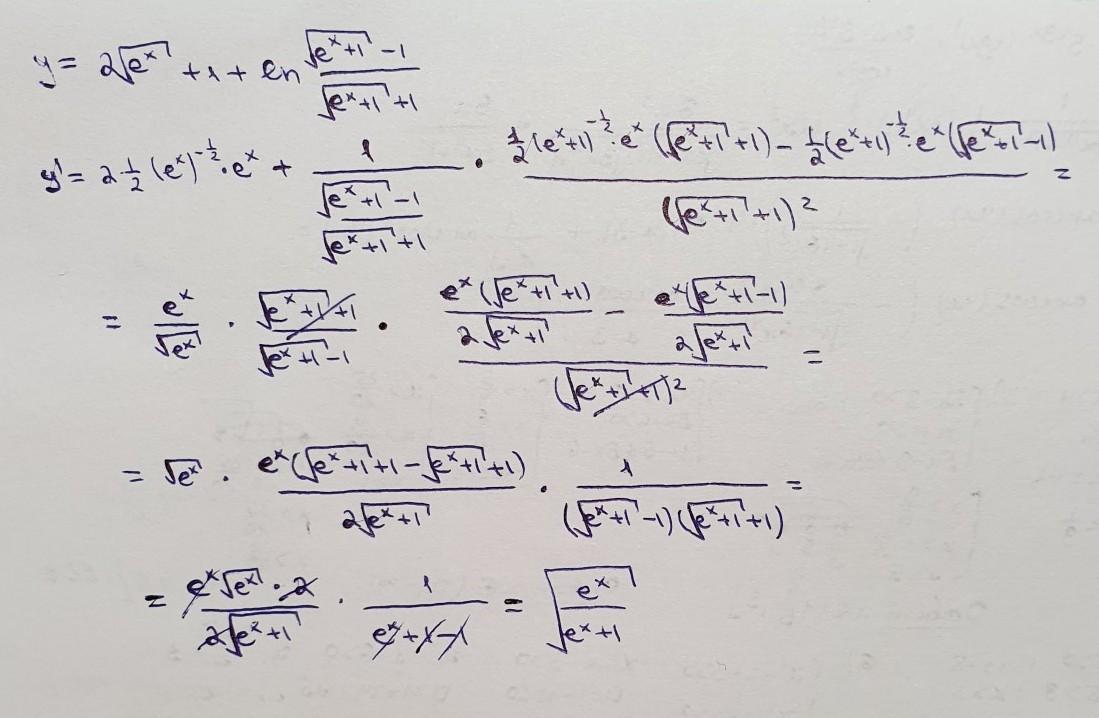 y = 2√(e^x) + 1 + ln (√(e^x+1) - 1)/(√(e^x+1) + 1)
y' = 2 1/2 (e^x)^(-1/2) · e^x + 1/((√(e^x+1) - 1)/(√(e^x+1) + 1)) · (1/2 (e^x+1)^(-1/2) · e^x (√(e^x+1) + 1) - 1/2 (e^x+1)^(-1/2) · e^x (√(e^x+1) - 1))/(√(e^x+1) + 1)^2 =
= e^x/√(e^x) · (√(e^x+1) + 1)/(√(e^x+1) - 1) · (e^x (√(e^x+1) + 1)/(2√(e^x+1)) - e^x (√(e^x+1) - 1)/(2√(e^x+1)))/(√(e^x+1) + 1)^2 =
= √(e^x) · e^x (√(e^x+1) + 1 - √(e^x+1) + 1)/(2√(e^x+1)) · 1/((√(e^x+1) - 1)(√(e^x+1) + 1)) =
= (e^x √(e^x) · 2)/(2√(e^x+1)) · 1/(e^x + 1 - 1) = √(e^x/(e^x+1))